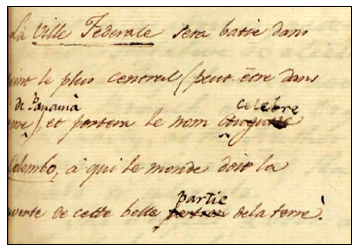 La Ville Federale sera batie dans
point le plus central (peut être dans
de Panamà celebre
me) et portera le nom
Colombo, à qui le monde doit la
uverte de cette belle partie de la terre.